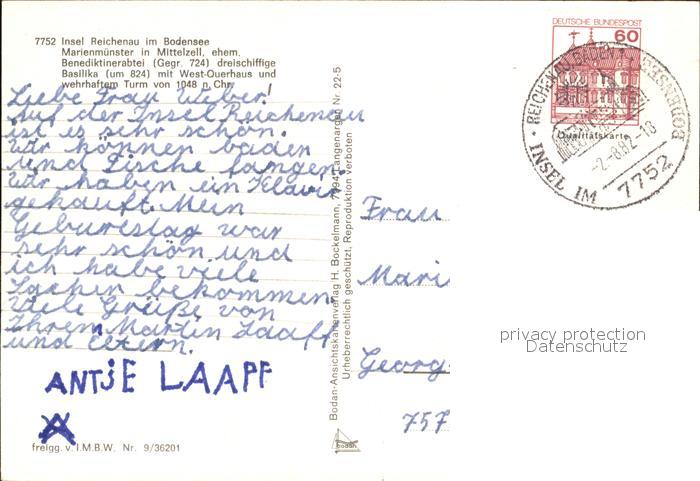 7752 Insel Reichenau im Bodensee
Marienmünster in Mittelzell, ehem.
Benediktinerabtei (Gegr. 724) dreischiffige
Basilika (um 824) mit West-Querhaus und
wehrhaftem Turm von 1048 n. Chr.
Liebe Frau Weber!
Auf der Insel Reichenau
ist es sehr schön.
Wir können baden
und Fische fangen.
Wir haben ein Klavier
gekauft. Mein
Geburtstag war
sehr schön und
ich habe viele
Sachen bekommen.
Viele Grüße von
Ihrem Martin Laaff
und Eltern.
ANTJE LAAFF
freigg. v. I.M.B.W. Nr. 9/36201
Bodan-Ansichtskartenverlag H. Bockelmann, 7994 Langenargen Nr. 22-5
Urheberrechtlich geschützt, Reproduktion verboten
bodan
DEUTSCHE BUNDESPOST
60
Qualitätskarte
REICHENAU, BADEN
BODENSEE
-2.-8.82-18
INSEL IM
7752
Frau
Mari
Georg-
757
privacy protection
Datenschutz